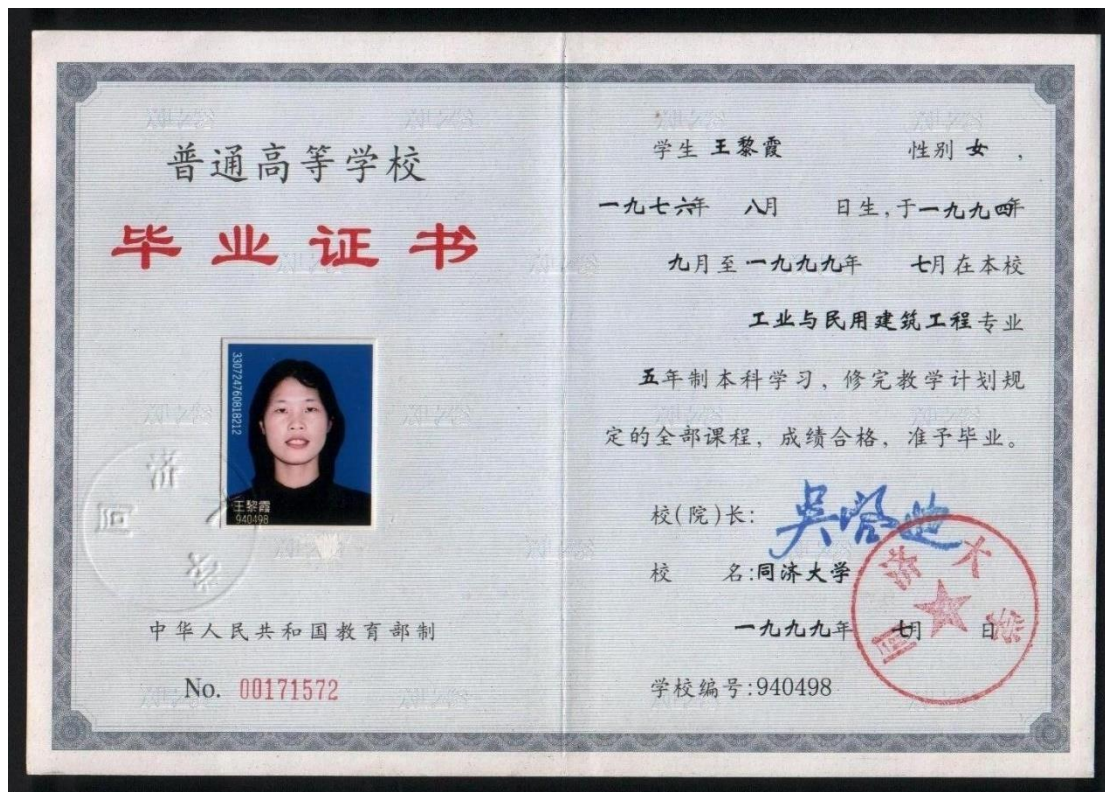 普通高等学校
毕业证书
330724760818212
王黎霞
940498
同济大学
中华人民共和国教育部制
No. 00171572
学生 王黎霞 性别 女 ,
一九七六年 八月 日生,于一九九四年
九月至一九九九年 七月在本校
工业与民用建筑工程专业
五年制本科学习，修完教学计划规
定的全部课程，成绩合格，准予毕业。
校(院)长:
校 名:同济大学
一九九九年 七月 日
同济大学
学校编号:940498